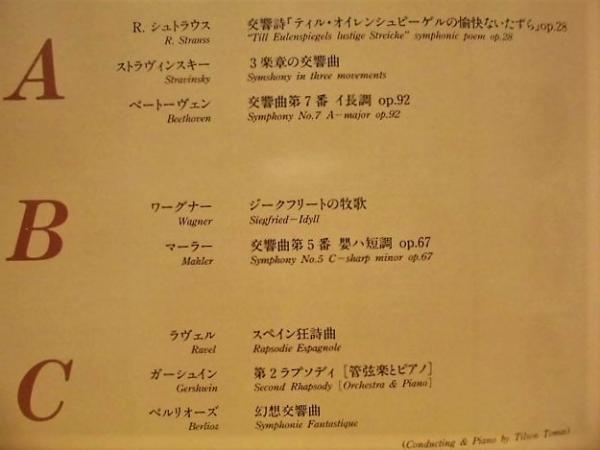 A
R. シュトラウス 交響詩『ティル・オイレンシュピーゲルの愉快ないたずら』op.28
R. Strauss "Till Eulenspiegels lustige Streiche" symphonic poem op.28
ストラヴィンスキー 3楽章の交響曲
Stravinsky Symshony in three movements
ベートーヴェン 交響曲第7番 イ長調 op.92
Beethoven Symphony No.7 A-major op.92
B
ワーグナー ジークフリートの牧歌
Wagner Siegfried-Idyll
マーラー 交響曲第5番 嬰ハ短調 op.67
Mahler Symphony No.5 C-sharp minor op.67
C
ラヴェル スペイン狂詩曲
Ravel Rapsodie Espagnole
ガーシュイン 第2ラプソディ［管弦楽とピアノ］
Gershwin Second Rhapsody [Orchestra & Piano]
ベルリオーズ 幻想交響曲
Berlioz Symphonie Fantastique
(Conducting & Piano by Tilson Tomas)